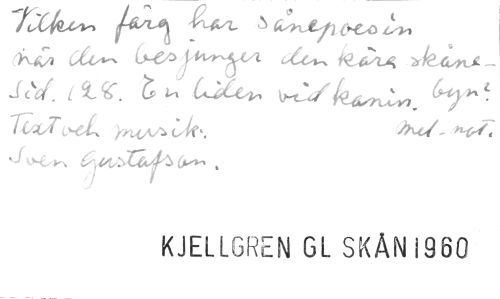 Vilken färg har sånepoesin
när den besjunger den kära skåne-
byn?
Sid. 128. En liden vid kanin.
Text och musik. mel-not.
Sven Gustafson.
KJELLGREN GL SKÅN 1960